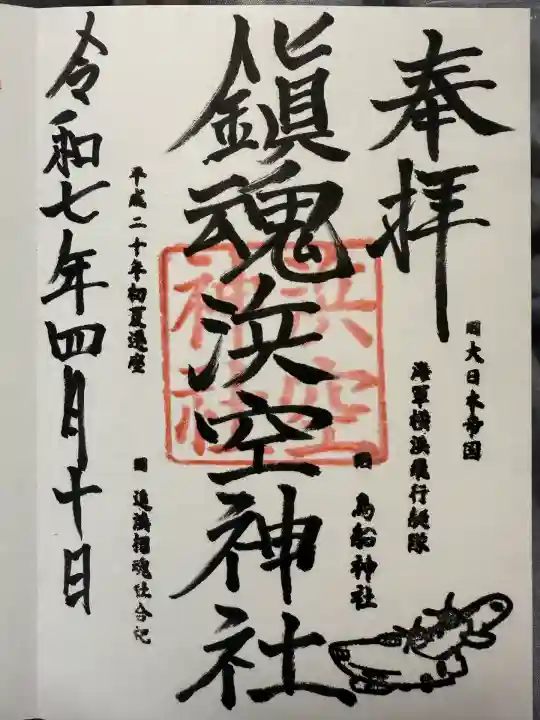 奉拝
旧大日本帝国
海軍横浜飛行艇隊
旧 鳥船神社
鎮魂浜空神社
浜空
神社
平成二十年初夏遷座
旧 追浜招魂社合祀
令和七年四月十日